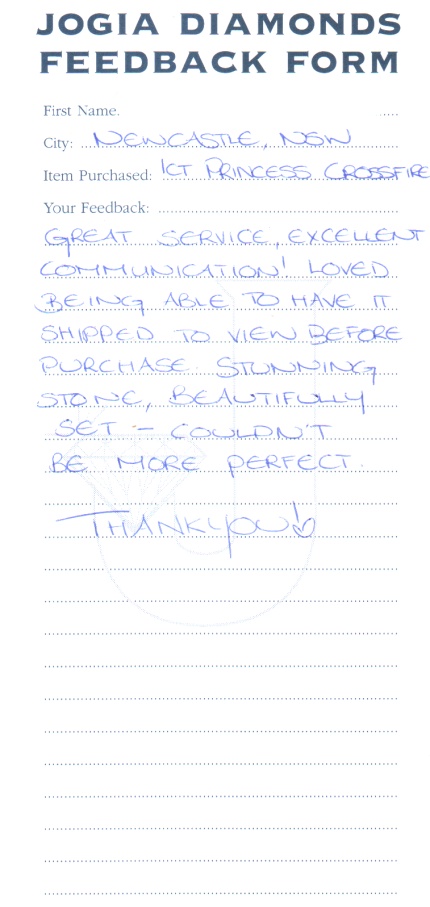 JOGIA DIAMONDS
FEEDBACK FORM
First Name.
City: NEWCASTLE, NSW
Item Purchased: 1CT PRINCESS CROSSFIRE
Your Feedback:
GREAT SERVICE, EXCELLENT
COMMUNICATION! LOVED
BEING ABLE TO HAVE IT
SHIPPED TO VIEW BEFORE
PURCHASE. STUNNING
STONE, BEAUTIFULLY
SET - COULDN'T
BE MORE PERFECT.
THANKYOU!